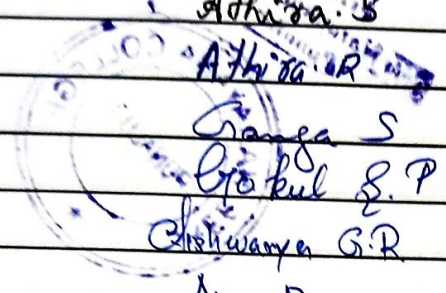 Athira. S
Athira. R
Ganga S
Gokul S. P
Aishwarya G.R